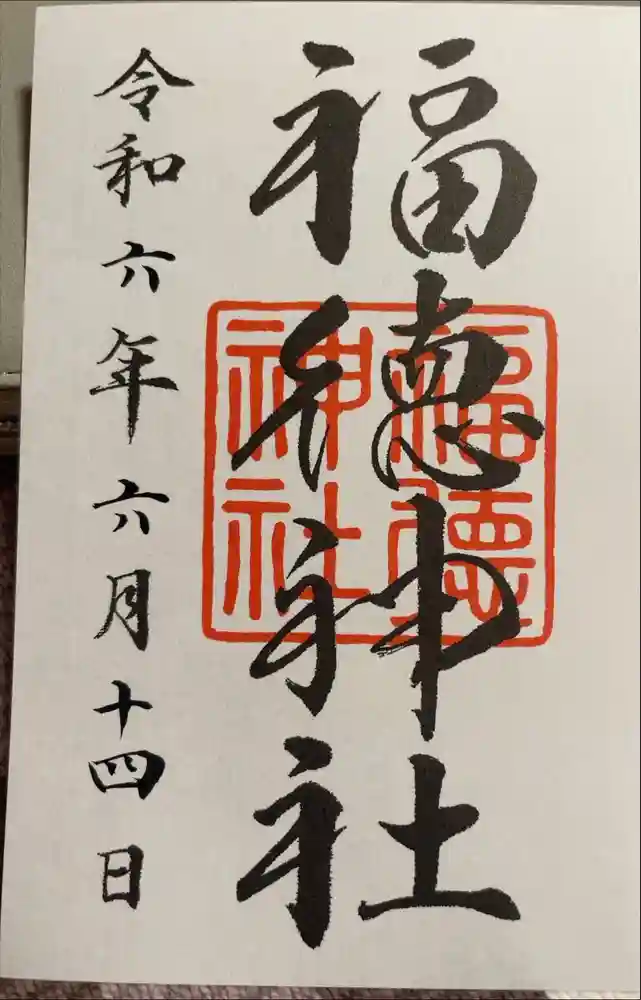 福徳神社
福徳神社
令和六年六月十四日